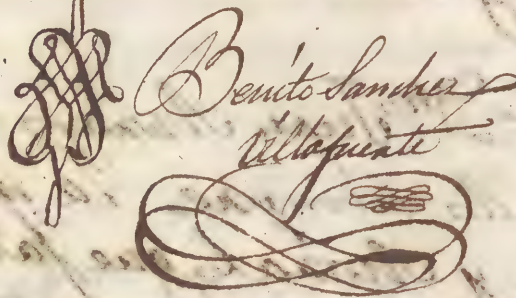 Benito Sanchez
Villafuente